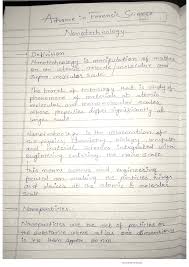 Advance in Forensic Science
Nanotechnology
Definition
Nanotechnology is manipulation of matter
on an atomic, molecular and
supra molecular scale.
The branch of technology that is study of
phenomenon of materials at atomic,
molecular and macromolecular scales,
whose properties differ significantly at
larger scale.
Nanotechnology is the
physics, chemistry, biology, computer
and material science integrated with
engineering entering the nano scale
This means science and engineering
focused on making the particles things
and devices at the atomic & molecular
scale.
Nanoparticles.
Nanoparticles are the set of particles or
the substance whose atleast one dimension
is less than approx.